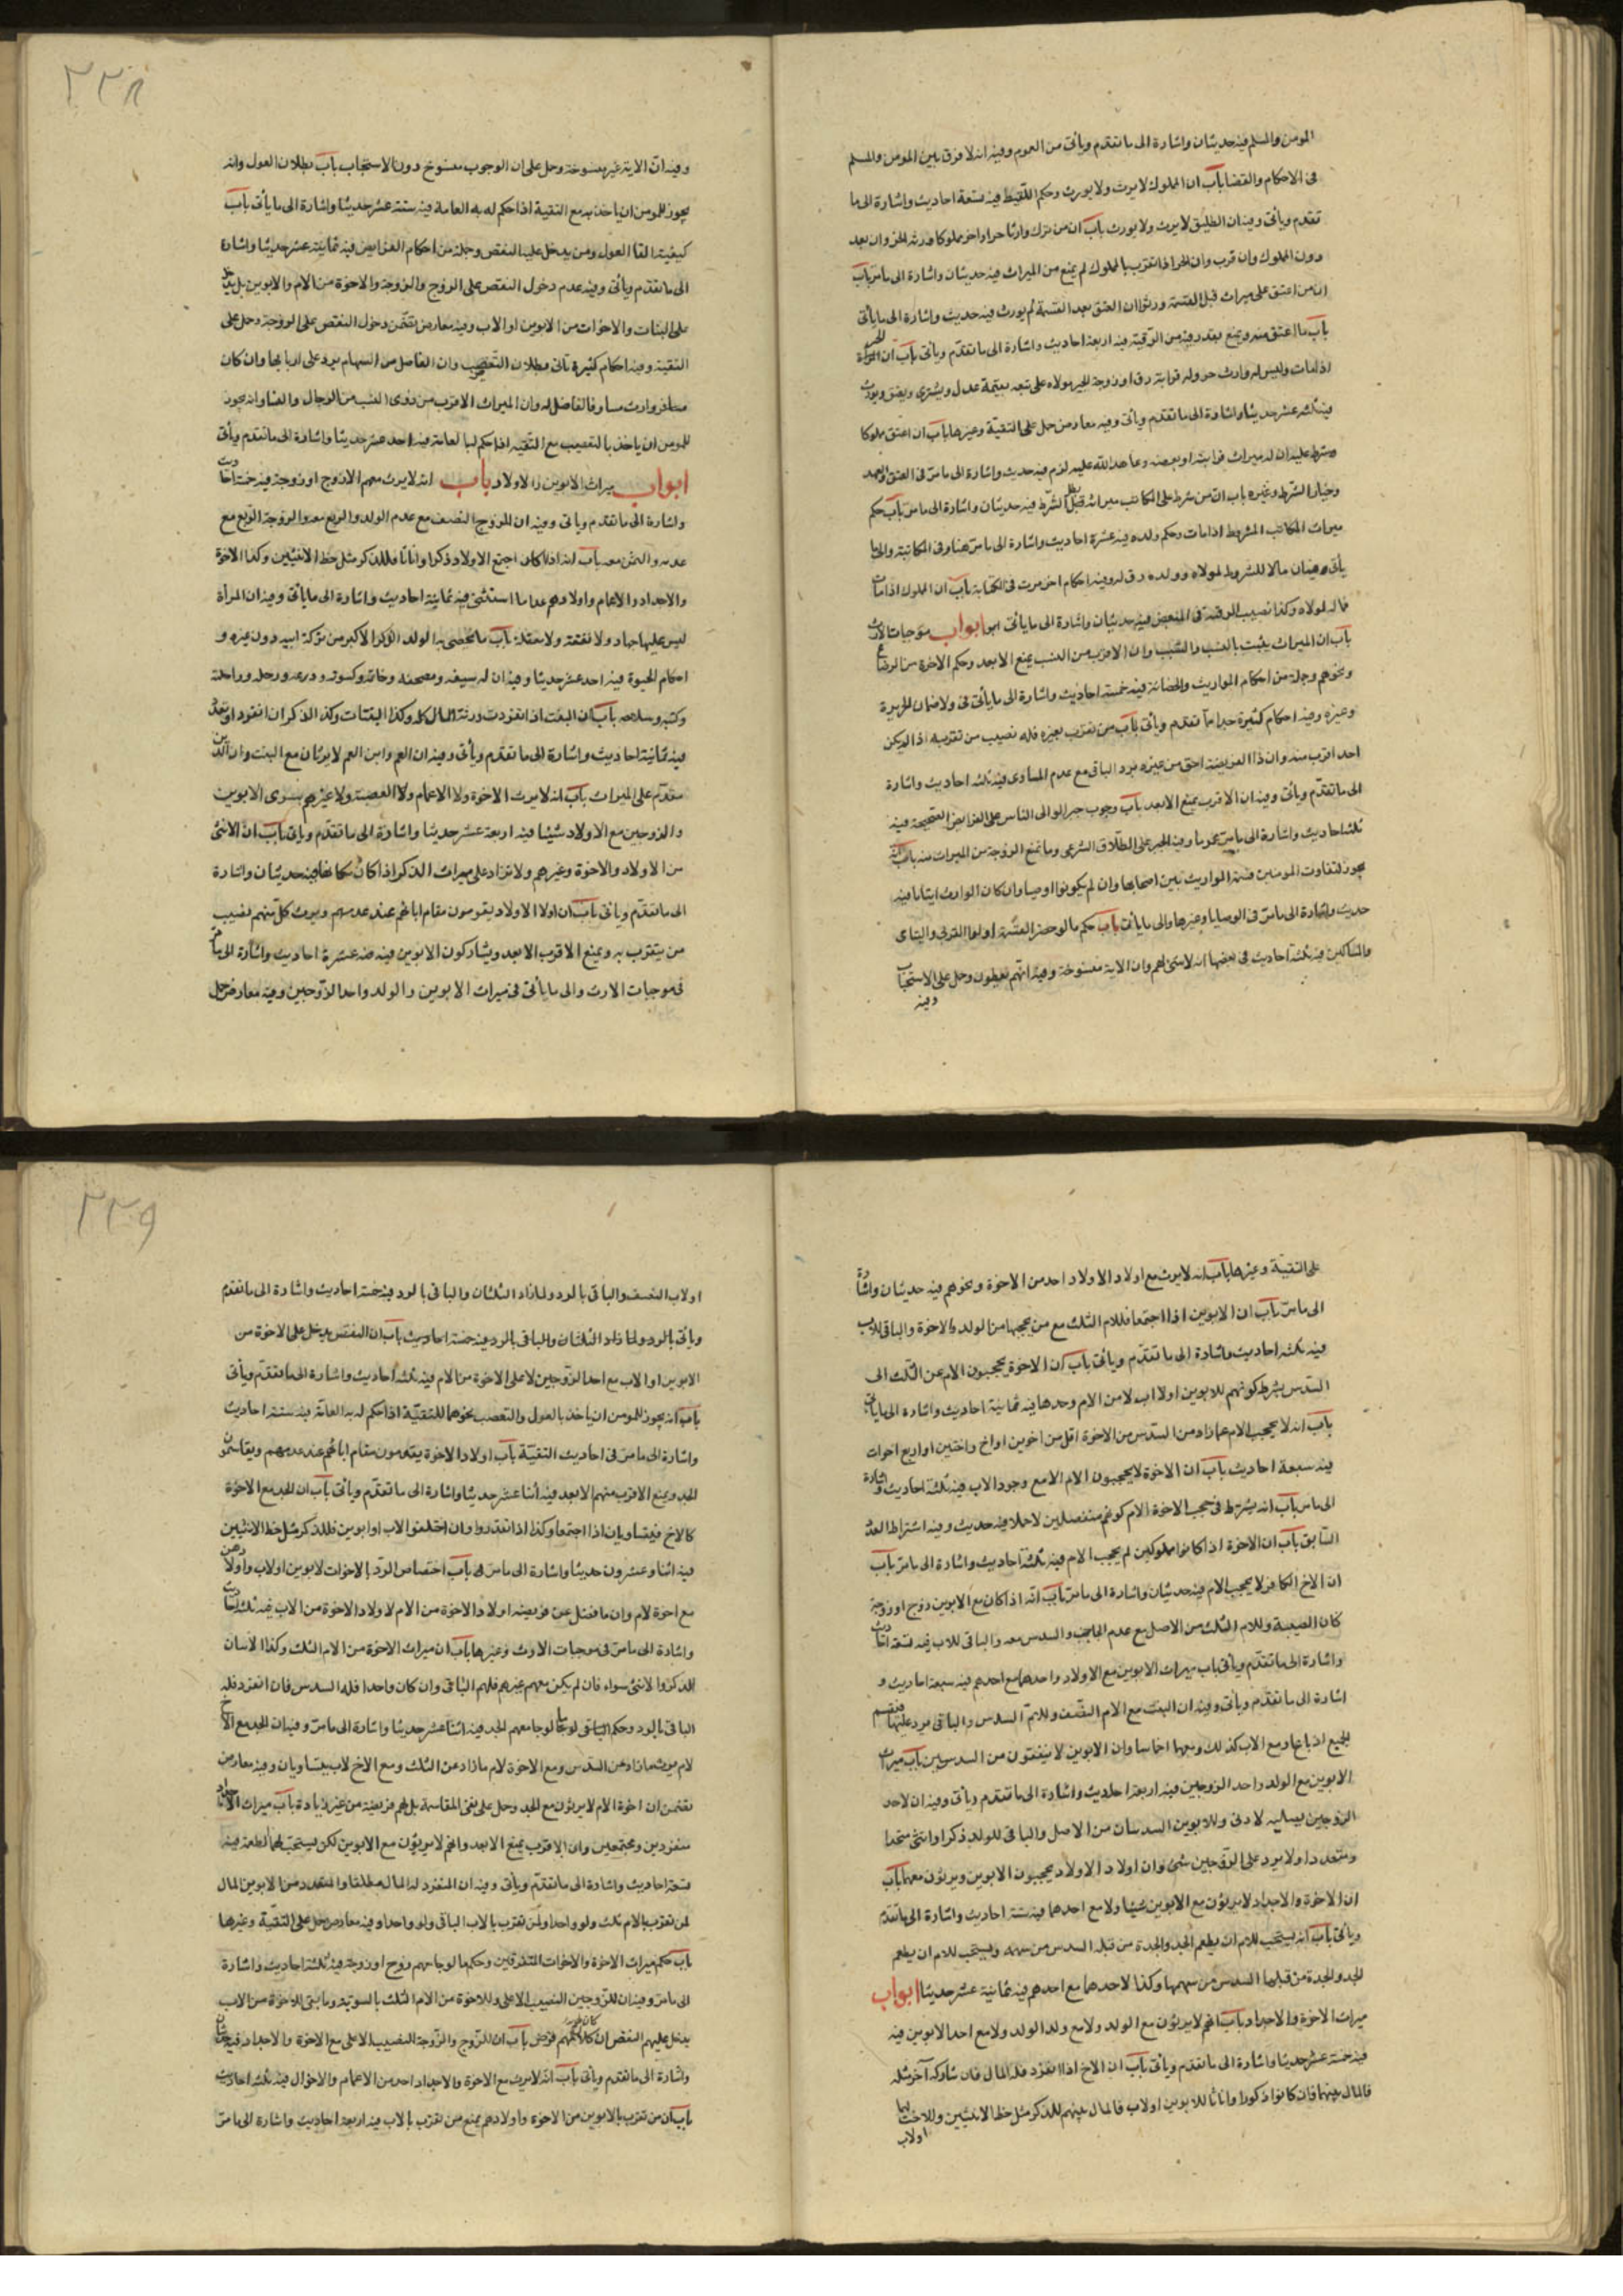 المومن والمسلم فيه حديثان واشارة الى ما تقدم ويأتى من العموم وفيه انه لا فرق بين المومن والمسلم
فى الاحكام والقضا باب ان المملوك لا يرث ولا يورث وحكم اللقيط فيه تسعة احاديث واشارة الى ما
تقدم ويأتى وفيه ان الطليق لا يرث ولا يورث باب ان من ترك وارثا حرا واخر مملوكا ورثه الحر وان بعد
دون المملوك وان قرب وان الحر اذا تقرب بالمملوك لم يمنع من الميراث فيه حديثان واشارة الى ما مر باب
ان من اعتق على ميراث قبل القسمة ورث وان اعتق بعد القسمة لم يورث فيه حديث واشارة الى ما يأتى
باب ما اعتق منه ويمنع بقدر رقيه من الرقية فيه اربعة احاديث واشارة الى ما تقدم ويأتى باب ان الحر
اذا مات وليس له وارث حر وله قرابة رق او زوجة يجبر مولاه على بيعه بقيمة عدل ويشترى ويعتق ويورث
فيه ثلثة عشر حديثا واشارة الى ما تقدم ويأتى وفيه معارض حمل على التقية وغيرها باب ان اعتق مملوكا
وشرط عليه ان له ميراث قرابته او بعضه وعاهد الله عليه لزم فيه حديث واشارة الى ما مر فى العتق والعهد
وخيار الشرط وغيره باب ان من شرط على المكاتب ميراثه بطل الشرط فيه حديثان واشارة الى ما مر باب حكم
ميراث المكاتب المشروط اذا مات وحكم ولده فيه عشرة احاديث واشارة الى ما مر هنا وفى المكاتبة والى ما
يأتى وفيه ان مال المشروط لمولاه وولده رق له وفيه احكام اخر مرت فى الكتابة باب ان المملوك اذا مات
فماله لمولاه وكذا نصيب الرقية فى المبعض فيه حديثان واشارة الى ما يأتى ابواب موجبات الارث
باب ان الميراث يثبت بالنسب والسبب وان الاقرب من النسب يمنع الابعد وحكم الاخوة من الرضاع
ونحوهم وجملة من احكام المواريث والحضانة فيه خمسة احاديث واشارة الى ما يأتى فى ولا ضمان الجريرة
وغيره وفيه احكام كثيرة جدا مما تقدم ويأتى باب من تقرب بغيره فله نصيب من تقرب به اذا لم يكن
احد اقرب منه وان ذا الفريضة احق من غيره برد الباقى مع عدم المساوى فيه ثلثه احاديث واشارة
الى ما تقدم ويأتى وفيه ان الاقرب يمنع الابعد باب وجوب جبر الوالى الناس على الفرائض الصحيحة فيه
ثلثة احاديث واشارة الى ما مر عموما وفيه الجبر على الطلاق الشرعى وما تمنع الزوجة من الميراث منه باب انه
يجوز لثقات المومنين قسمة المواريث بين اصحابها وان لم يكونوا اوصيا وان كان الوارث ايتاما فيه
حديث واشارة الى ما مر فى الوصايا وغيرها والى ما يأتى باب حكم ما لو حضر القسمة اولوا القربى واليتامى
والمساكين فيه ثلثة احاديث فى بعضها انه لا شئ لهم وان الاية منسوخة وفيه انهم يعطون وحمل على الاستحباب
وفيه
٢٢٨
وفيه ان الاية غير منسوخة وحمل على ان الوجوب منسوخ دون الاستحباب باب بطلان العول وانه
يجوز للمومن ان ياخذ به مع التقية اذا حكم له به العامة فيه ستة عشر حديثا واشارة الى ما يأتى باب
كيفية القا العول ومن يدخل عليه النقص وجملة من احكام الفرايض فيه ثمانية عشر حديثا واشارة
الى ما تقدم ويأتى وفيه عدم دخول النقص على الزوج والزوجة والاخوة من الام والابوين بل يدخل
على البنات والاخوات من الابوين او الاب وفيه معارض تضمن دخول النقص على الزوجة وحمل على
التقية وفيه احكام كثيرة تأتى بطلان التعصيب وان الفاضل من السهام يرد على اربابها وان كان
معاوارث مساو فالفاضل له وان الميراث الاقرب من ذوى النسب من الرجال والنسا وانه يجوز
للمومن ان ياخذ بالتعصيب مع التقيه اذا حكم له العامة فيه احد عشر حديثا واشارة الى ما تقدم ويأتى
ابواب ميراث الابوين والاولاد باب انه لا يرث معهم الا زوج او زوجة فيه خمسة احاديث
واشارة الى ما تقدم وياتى وفيه ان للزوج النصف مع عدم الولد والربع معه والزوجة الربع مع
عدمه والثمن معه باب انه اذا كان اجتمع الاولاد ذكرا واناثا فللذكر مثل حظ الانثيين وكذا الاخوة
والاجداد والاعمام واولادهم عدا ما استثنى فيه ثمانية احاديث واشارة الى ما يأتى وفيه ان المرأة
ليس عليها جهاد ولا نفقة ولا معقلة باب ما يختص به الولد الذكر الاكبر من تركة ابيه دون غيره و
احكام الحبوة فيه احد عشر حديثا وفيه ان له سيفه ومصحفه وخاتمه وكسوته ودرعه ورحله وراحلته
وكتبه وسلاحه باب ان البنت اذا انفردت ورثت المال كله وكذا البنتات وكذا الذكر ان انفرد او تعدد
فيه ثمانية احاديث واشارة الى ما تقدم ويأتى وفيه ان العم وابن العم لا يرثان مع البنت وان الدين
مقدم على الميراث باب انه لا يرث الاخوة ولا الاعمام ولا العصبة ولا غيرهم سوى الابوين
والزوجين مع الاولاد شيئا فيه اربعة عشر حديثا واشارة الى ما تقدم وياتى باب ان الانثى
من الاولاد والاخوة وغيرهم ولا تزاد على ميراث الذكر اذا كان مكانها فيه حديثان واشارة
الى ما تقدم وياتى باب ان اولاد الاولاد يقومون مقام ابائهم عند عدمهم ويرث كل منهم نصيب
من يتقرب به ويمنع الاقرب الابعد ويشاركون الابوين فيه عشرة احاديث واشارة الى ما مر
فى موجبات الارث والى ما يأتى فى ميراث الابوين والولد واحد الزوجين وفيه معارض حمل
على التقية وغيرها باب انه لا يرث مع اولاد الاولاد احد من الاخوة ونحوهم فيه حديثان واشارة
الى ما مر باب ان الابوين اذا اجتمعا فللام الثلث مع من يحجبها من الولد والاخوة والباقى للاب
فيه ثلثه احاديث واشارة الى ما تقدم ويأتى باب ان الاخوة يحجبون الام عن الثلث الى
السدس بشرط كونهم للابوين او لاب لا من الام وحدها فيه ثمانية احاديث واشارة الى ما يأتى
باب انه لا يحجب الام عما زاد من السدس من الاخوة اقل من اخوين او اخ واختين او اربع اخوات
فيه سبعة احاديث باب ان الاخوة لا يحجبون الام الا مع وجود الاب فيه ثلثة احاديث واشارة
الى ما مر باب انه يشترط فى حجب الاخوة الام كونهم منفصلين لا حملا فيه حديث وفيه اشتراط العدد
السابق باب ان الاخوة اذا كانوا مملوكين لم يحجب الام فيه ثلثة احاديث واشارة الى ما مر باب
ان الاخ الكافر لا يحجب الام فيه حديثان واشارة الى ما مر باب انه اذا كان مع الابوين زوج او زوجة
كان النصيبه وللام الثلث من الاصل مع عدم الحاجب والسدس معه والباقى للاب فيه تسعة احاديث
واشارة الى ما تقدم ويأتى باب ميراث الابوين مع الاولاد واحدهما مع احدهم فيه سبعة احاديث و
اشارة الى ما تقدم وياتى وفيه ان البنت مع الام النصف وللام السدس والباقى يرد عليهما فيقسم
الجميع ارباعا ومع الاب كذلك ومعهما اخماسا وان الابوين لا ينقصون من السدسين باب ميراث
الابوين مع الولد واحد الزوجين فيه اربعة احاديث واشارة الى ما تقدم ويأتى وفيه ان لاحد
الزوجين نصيبه الادنى وللابوين السدسان من الاصل والباقى للولد ذكرا او انثى متحدا
ومتعددا ولا يرد على الزوجين شئ وان اولاد الاولاد يحجبون الابوين ويرثون معهما باب
ان الاخوة والاجداد لا يرثون مع الابوين شيئا ولا مع احدهما فيه ستة احاديث واشارة الى ما تقدم
ويأتى باب انه يستحب للاب ان يطعم الجد والجدة من قبله السدس من سهمه ويستحب للام ان يطعم
الجد والجدة من قبلها السدس من سهمها وكذا لاحدهما مع احدهم فيه ثمانية عشر حديثا ابواب
ميراث الاخوة والاجداد باب انهم لا يرثون مع الولد ولا مع ولد الولد ولا مع احد الابوين فيه
فيه خمسة عشر حديثا واشارة الى ما تقدم ويأتى باب ان الاخ اذا انفرد فله المال فان شاركه آخر مثله
فالمال بينهما فان كانوا ذكورا واناثا للابوين او لاب فالمال بينهم للذكر مثل حظ الانثيين وللاخت لهما
اولاب
٢٢٩
اولاب النصف والباقى بالرد ولما زاد الثلثان والباقى بالرد فيه خمسة احاديث واشارة الى ما تقدم
ويأتى بالرد ولما زاد الثلثان والباقى بالرد فيه خمسة احاديث باب ان النقص يدخل على الاخوة من
الابوين او الاب مع احد الزوجين لا على الاخوة من الام فيه ثلثة احاديث واشارة الى ما تقدم ويأتى
باب انه يجوز للمومن ان ياخذ بالعول والتعصيب نحوهما للتقية اذا حكم له به العامة فيه ستة احاديث
واشارة الى ما مر فى احاديث التقية باب اولاد الاخوة يقومون مقام ابائهم عند عدمهم ويقاسمون
الجد ويمنع الاقرب منهم الابعد فيه اثنا عشر حديثا واشارة الى ما تقدم ويأتى باب ان الجد مع الاخوة
كالاخ فيتساويان اذا اجتمعا وكذا اذا تعددوا وان اختلفوا لاب او ابوين فللذكر مثل حظ الانثيين
فيه اثنا وعشرون حديثا واشارة الى ما مر باب اختصاص الرد بالاخوات لابوين او لاب واولادهن
مع اخوة لام وان ما فضل عن فريضة اولاد الاخوة من الام لاولاد الاخوة من الاب فيه ثلثة احاديث
واشارة الى ما مر فى موجبات الارث وغيرها باب ان ميراث الاخوة من الام الثلث وكذا الاثنان
الذكر والانثى سواء فان لم يكن معهم غيرهم فلهم الباقى وان كان واحدا فله السدس فان انفرد فله
الباقى بالرد وحكم الباقى لو جامعهم الجد فيه اثنا عشر حديثا واشارة الى ما مر وفيه ان الجد مع الاخ
لام يرث ما زاد عن السدس ومع الاخوة لام ما زاد عن الثلث ومع الاخ لاب يتساويان وفيه معارض
تضمن ان اخوة الام لا يرثون مع الجد وحمل على نفى المقاسمة بل لهم فريضة من غير زيادة باب ميراث الاجداد
منفردين ومجتمعين وان الاقرب يمنع الابعد وانهم لا يرثون مع الابوين لكن يستحب لهما الطعمة فيه
تسعة احاديث واشارة الى ما تقدم ويأتى وفيه ان المنفرد له المال مطلقا والمتعدد من الابوين المال
لمن تقرب بالام ثلث ولو واحدا ولمن تقرب بالاب الباقى ولو واحدا وفيه معارض حمل على التقية وغيرها
باب حكم ميراث الاخوة والاخوات المتفرقين وحكم ما لو جامعهم زوج او زوجة فيه ثلثة احاديث واشارة
الى ما مر وفيه ان للزوجين النصيب الاعلى وللاخوة من الام الثلث بالسوية وما بقى للاخوة من الاب
يدخل عليهم النقص ان كان باب ان للزوج والزوجة النصيب الاعلى مع الاخوة والاجداد فيه حديثان
واشارة الى ما تقدم ويأتى باب انه لا يرث مع الاخوة والاجداد احد من الاعمام والاخوال فيه ثلثة احاديث
باب ان من تقرب بالابوين من الاخوة واولادهم يمنع من تقرب بالاب فيه اربعة احاديث واشارة الى ما مر